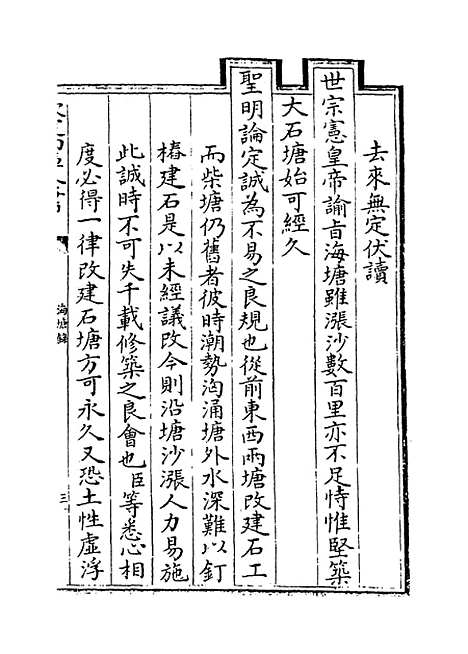 去來無定伏讀
世宗憲皇帝諭㫖海塘雖漲沙數百里亦不足恃惟堅築
大石塘始可經久
聖明論定誠為不易之良規也從前東西兩塘改建石工
而柴塘仍舊者彼時潮勢洶涌塘外水深難以釘
樁建石是以未經議改今則沿塘沙漲人力易施
此誠時不可失千載修築之良會也臣等悉心相
度必得一律改建石塘方可永久又恐土性虛浮
海塘錄